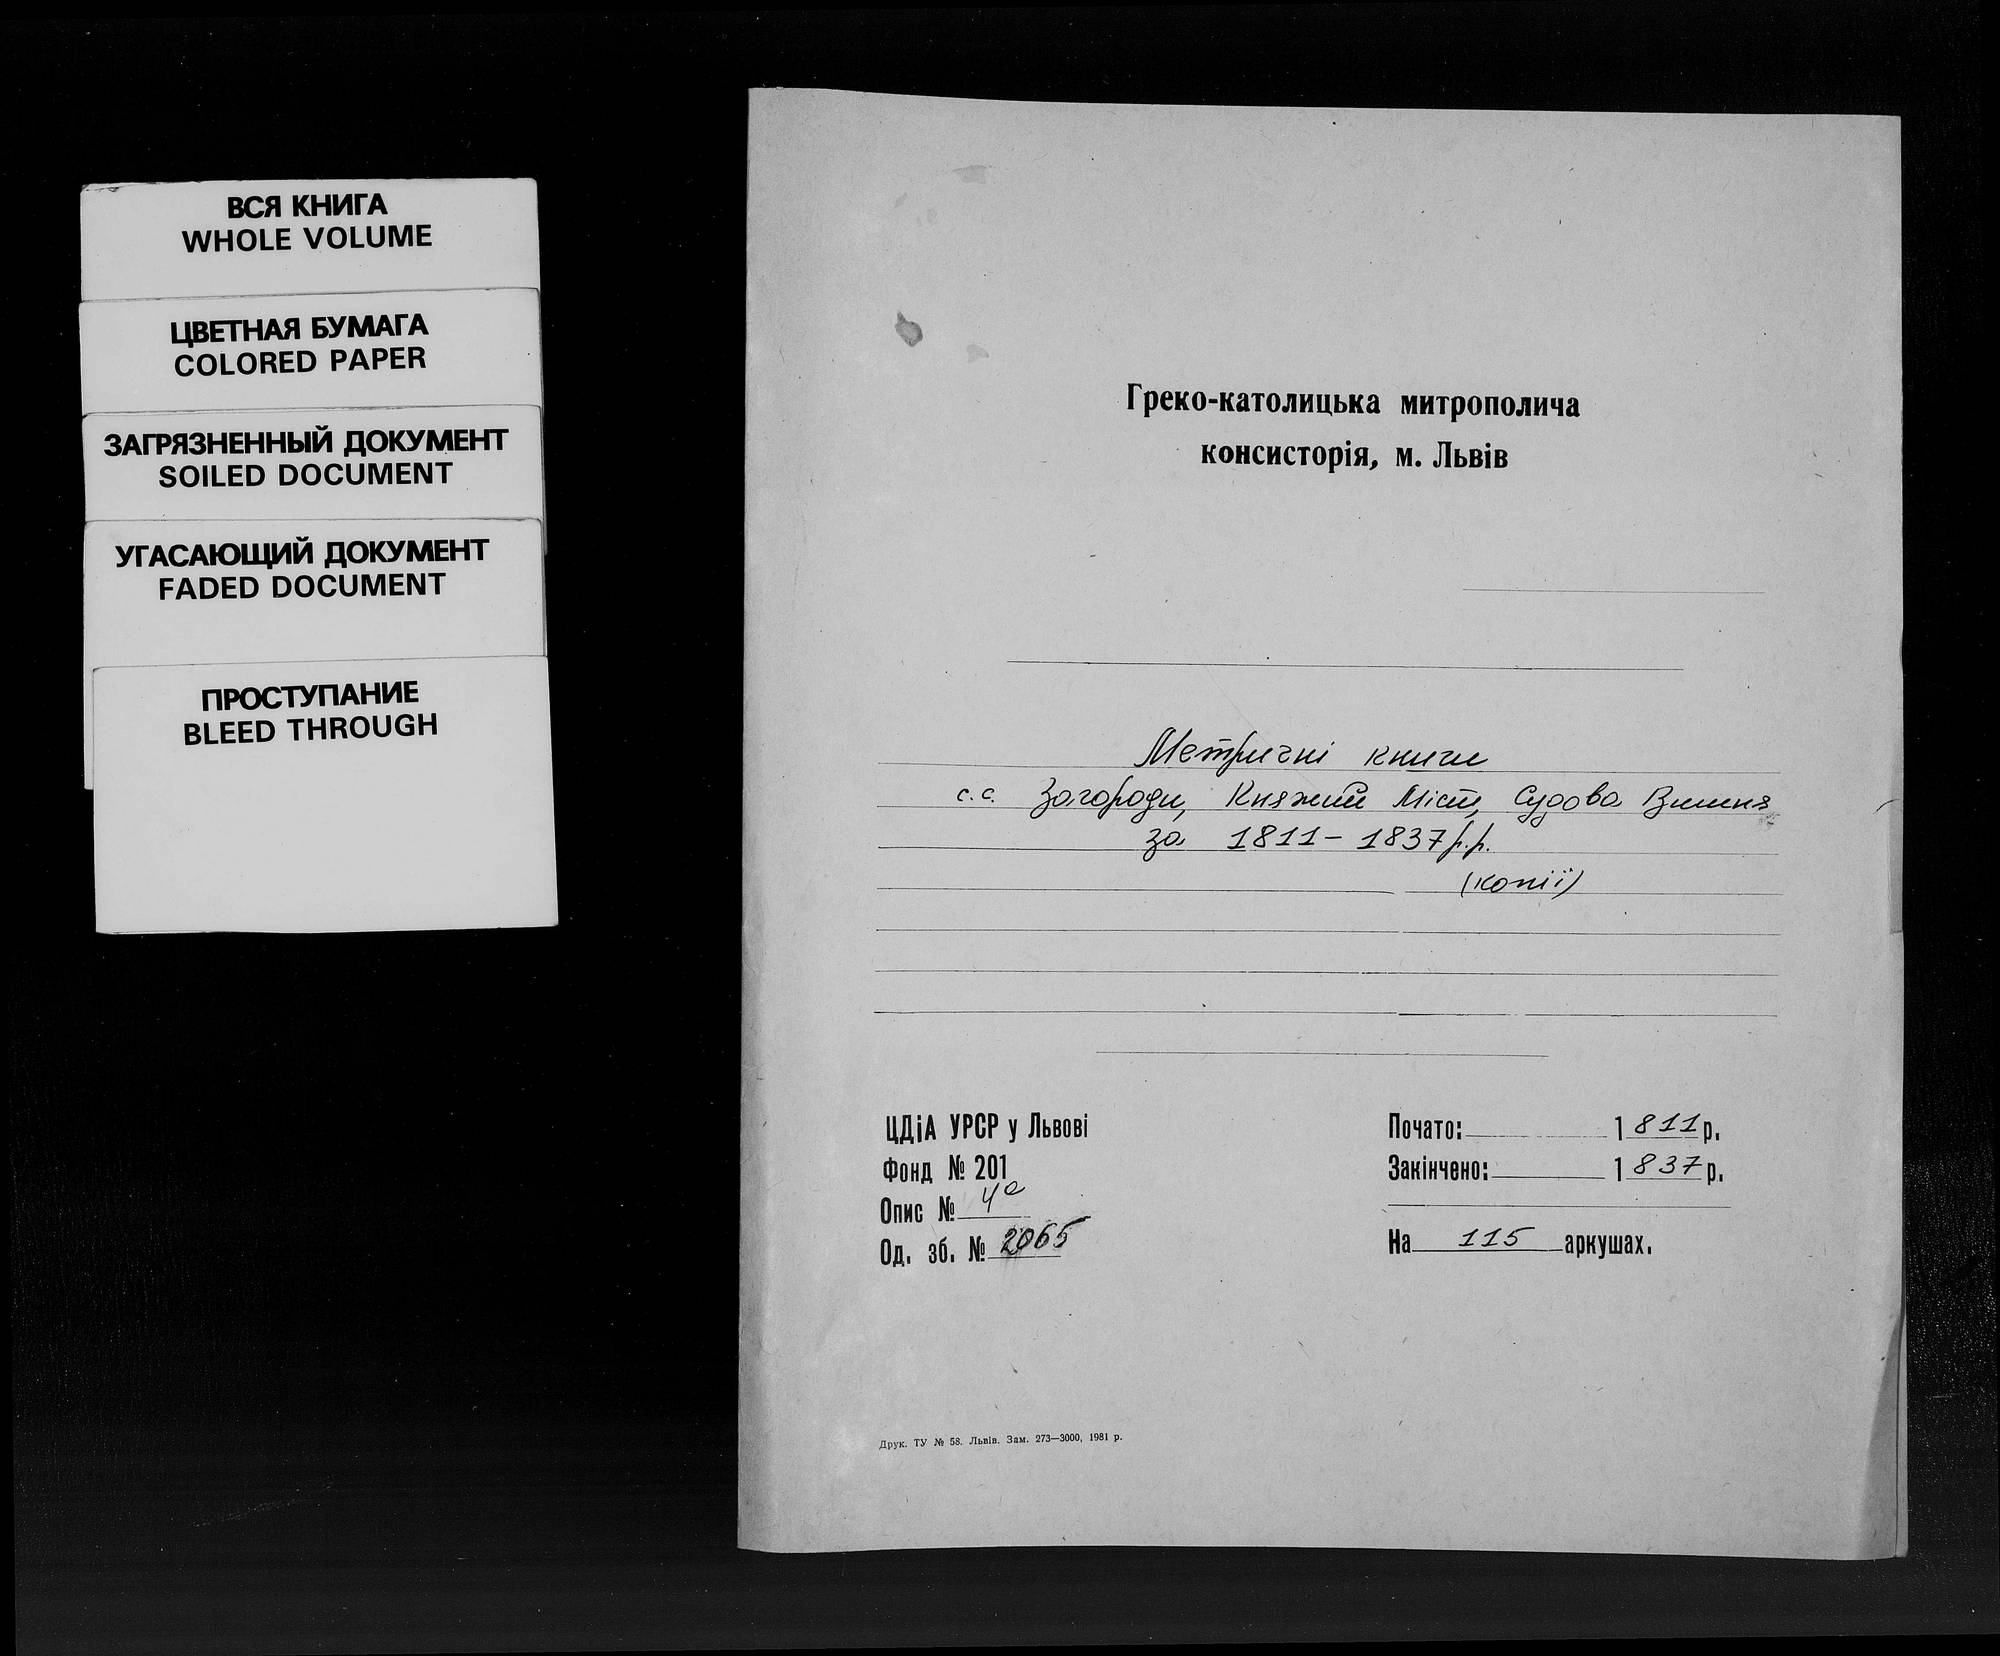 ВСЯ КНИГА
WHOLE VOLUME
ЦВЕТНАЯ БУМАГА
COLORED PAPER
ЗАГРЯЗНЕННЫЙ ДОКУМЕНТ
SOILED DOCUMENT
УГАСАЮЩИЙ ДОКУМЕНТ
FADED DOCUMENT
ПРОСТУПАНИЕ
BLEED THROUGH
Греко-католицька митрополича
консисторія, м. Львів
Метричні книги
с.с. Загороди, Княжий Міст, Судова Вишня
за 1811-1837 р.р.
(копії)
ЦДіА УРСР у Львові
Фонд № 201
Опис № 4а
Од. зб. № 2065
Почато: 1811 р.
Закінчено: 1837 р.
На 115 аркушах.
Друк. ТУ № 58. Львів. Зам. 273—3000, 1981 р.